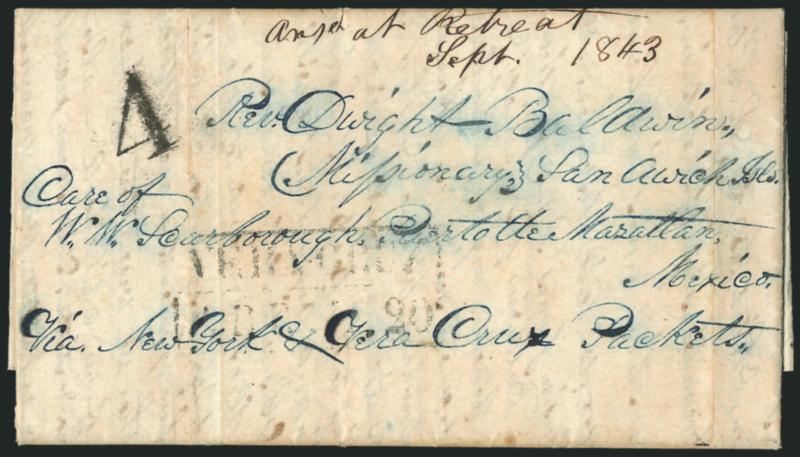 Ans'd at Retreat
Sept. 1843
4
Rev. Dwight Baldwin,,
Missionary, Sandwich Isls.
Care of
W. W. Scarborough, Mazatlan,
Mexico.
VERACRUZ
20
Via. New York & Vera Cruz Packets,,